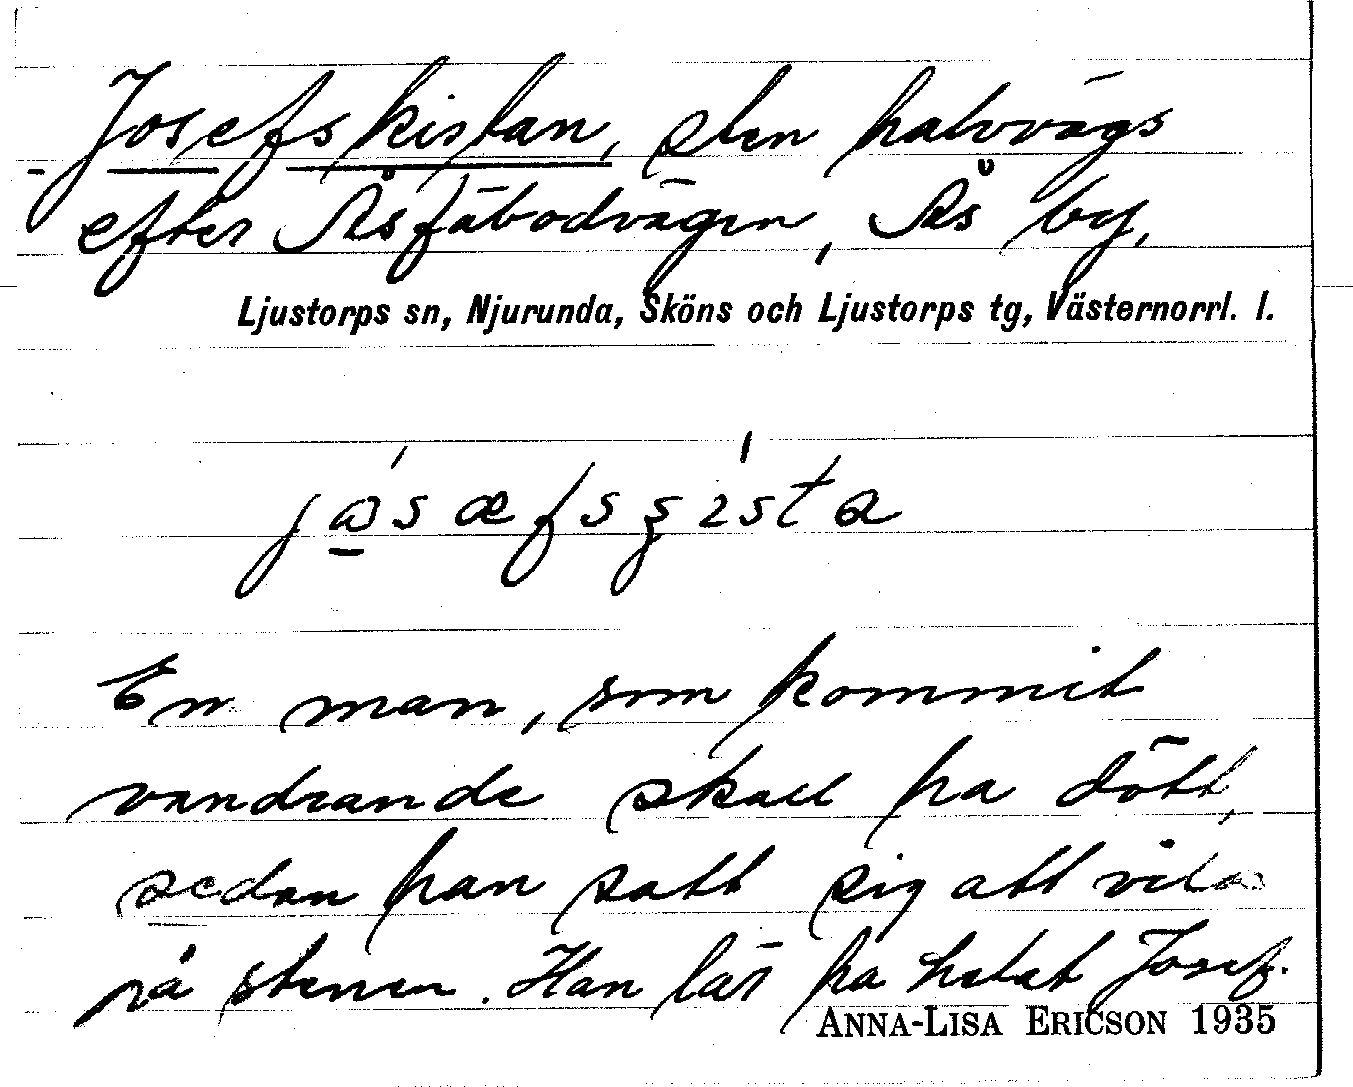 Josefskistan, sten halvvägs
efter Åsfäbodvägen, Ås by,
Ljustorps sn, Njurunda, Sköns och Ljustorps tg, Västernorrl. l.
En man, som kommit
vandrande skall ha dött,
sedan han satt sig att vila
på stenen. Han lär ha hetat Josef.
ANNA-LISA ERICSON 1935